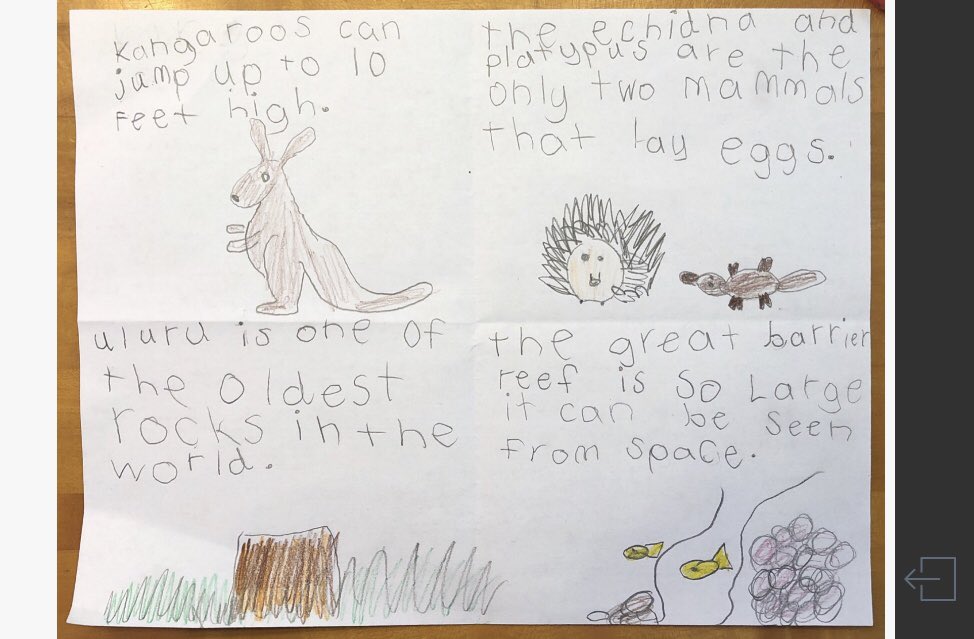 Kangaroos can
jump up to 10
feet high.
the echidna and
platypus are the
only two mammals
that lay eggs.
uluru is one of
the oldest
rocks in the
world.
the great barrier
reef is so large
it can be seen
from space.